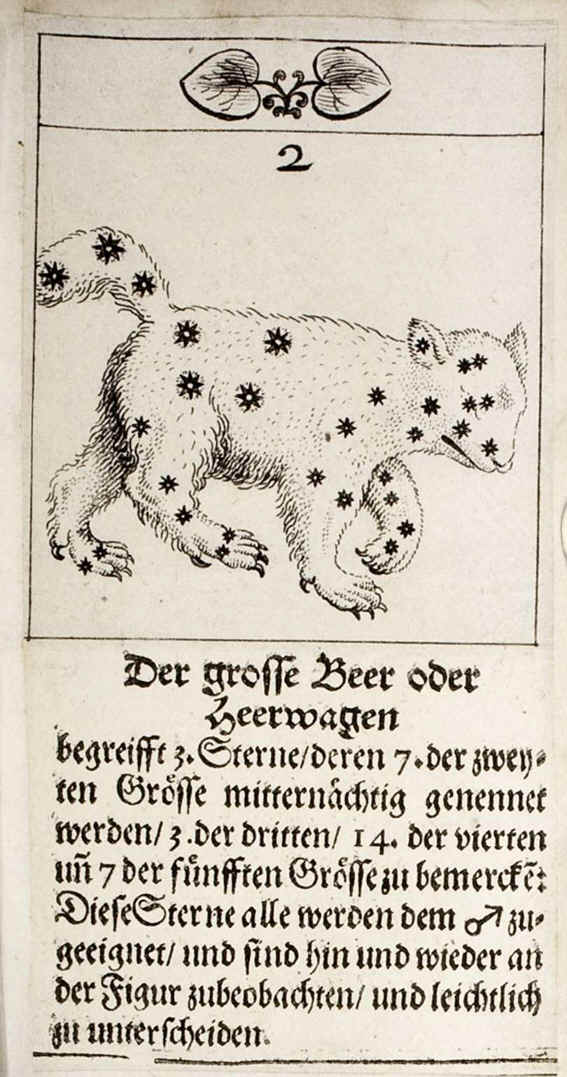 2
Der grosse Beer oder
Heerwagen
begreifft 3. Sterne/deren 7. der zwey-
ten Grösse mitternächtig genennet
werden/ 3. der dritten/ 14. der vierten
uñ 7 der fünfften Grösse zu bemercke͂:
Diese Sterne alle werden dem ♂ zu-
geeignet/ und sind hin und wieder an
der Figur zubeobachten/ und leichtlich
zu unterscheiden.